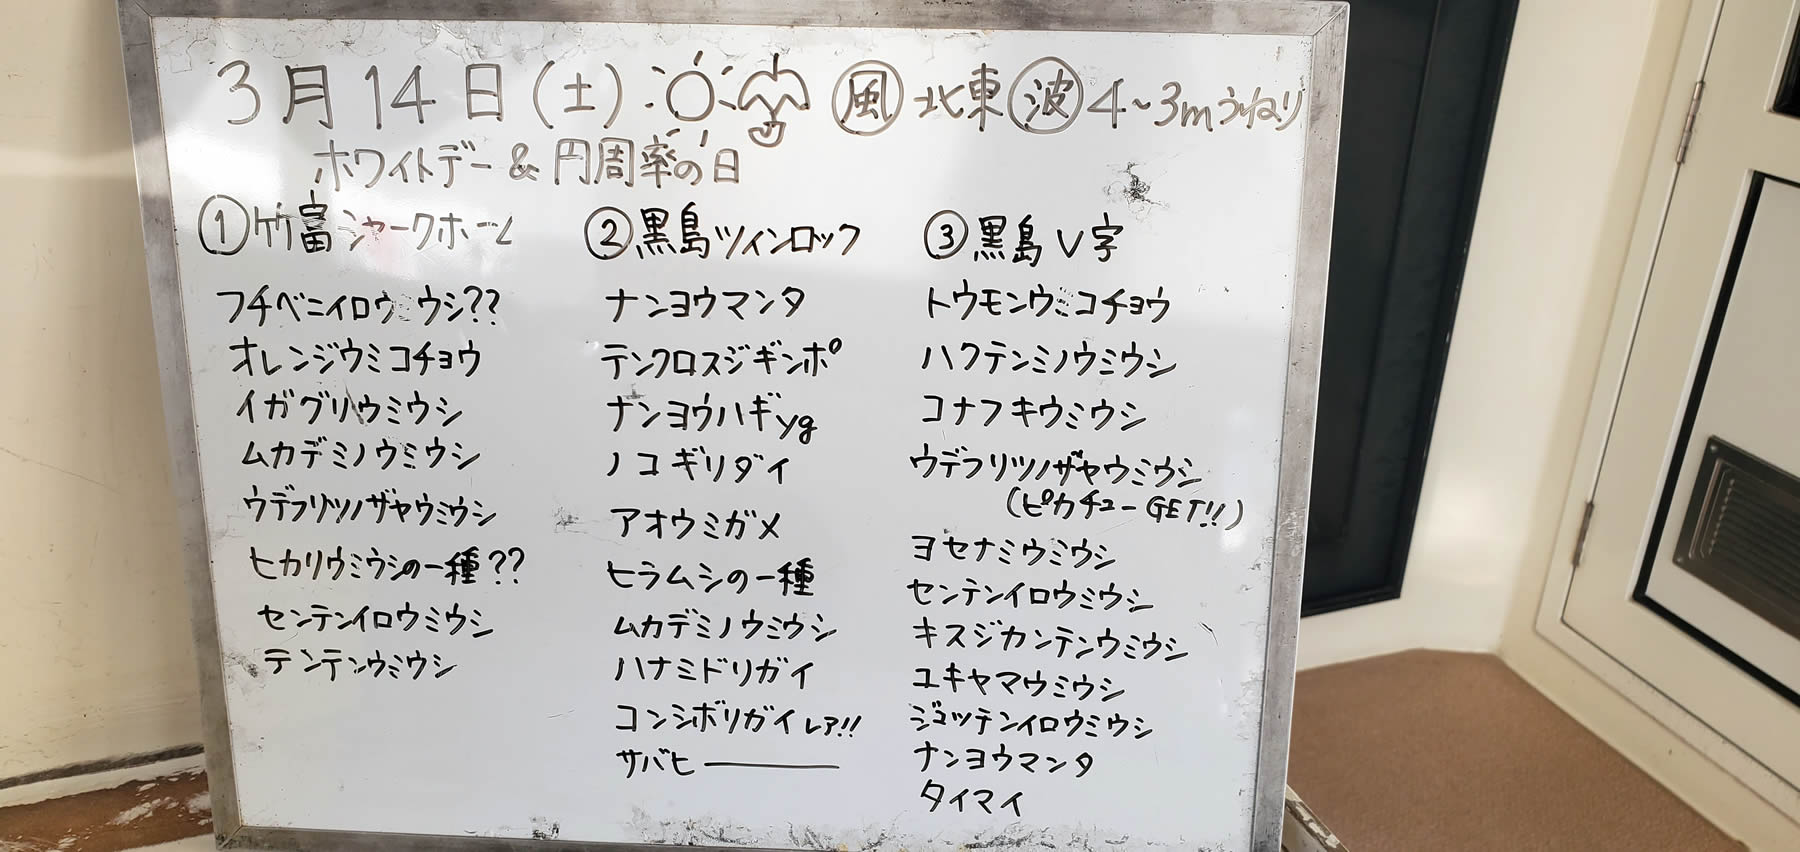 3月14日(土) 風 北東 波 4~3mうねり
ホワイトデー & 円周率の日
① 竹富シャークホーム
フチベニイロウミウシ??
オレンジウミコチョウ
イガグリウミウシ
ムカデミノウミウシ
ウデフリツノザヤウミウシ
ヒカリウミウシの一種??
センテンイロウミウシ
テンテンウミウシ
② 黒島ツインロック
ナンヨウマンタ
テンクロスジギンポ
ナンヨウハギyg
ノコギリダイ
アオウミガメ
ヒラムシの一種
ムカデミノウミウシ
ハナミドリガイ
コンシボリガイレア!!
サバヒー
③ 黒島V字
トウモンウミコチョウ
ハクテンミノウミウシ
コナフキウミウシ
ウデフリツノザヤウミウシ
(ピカチューGET!!)
ヨセナミウミウシ
センテンイロウミウシ
キスジカンテンウミウシ
ユキヤマウミウシ
ジュッテンイロウミウシ
ナンヨウマンタ
タイマイ